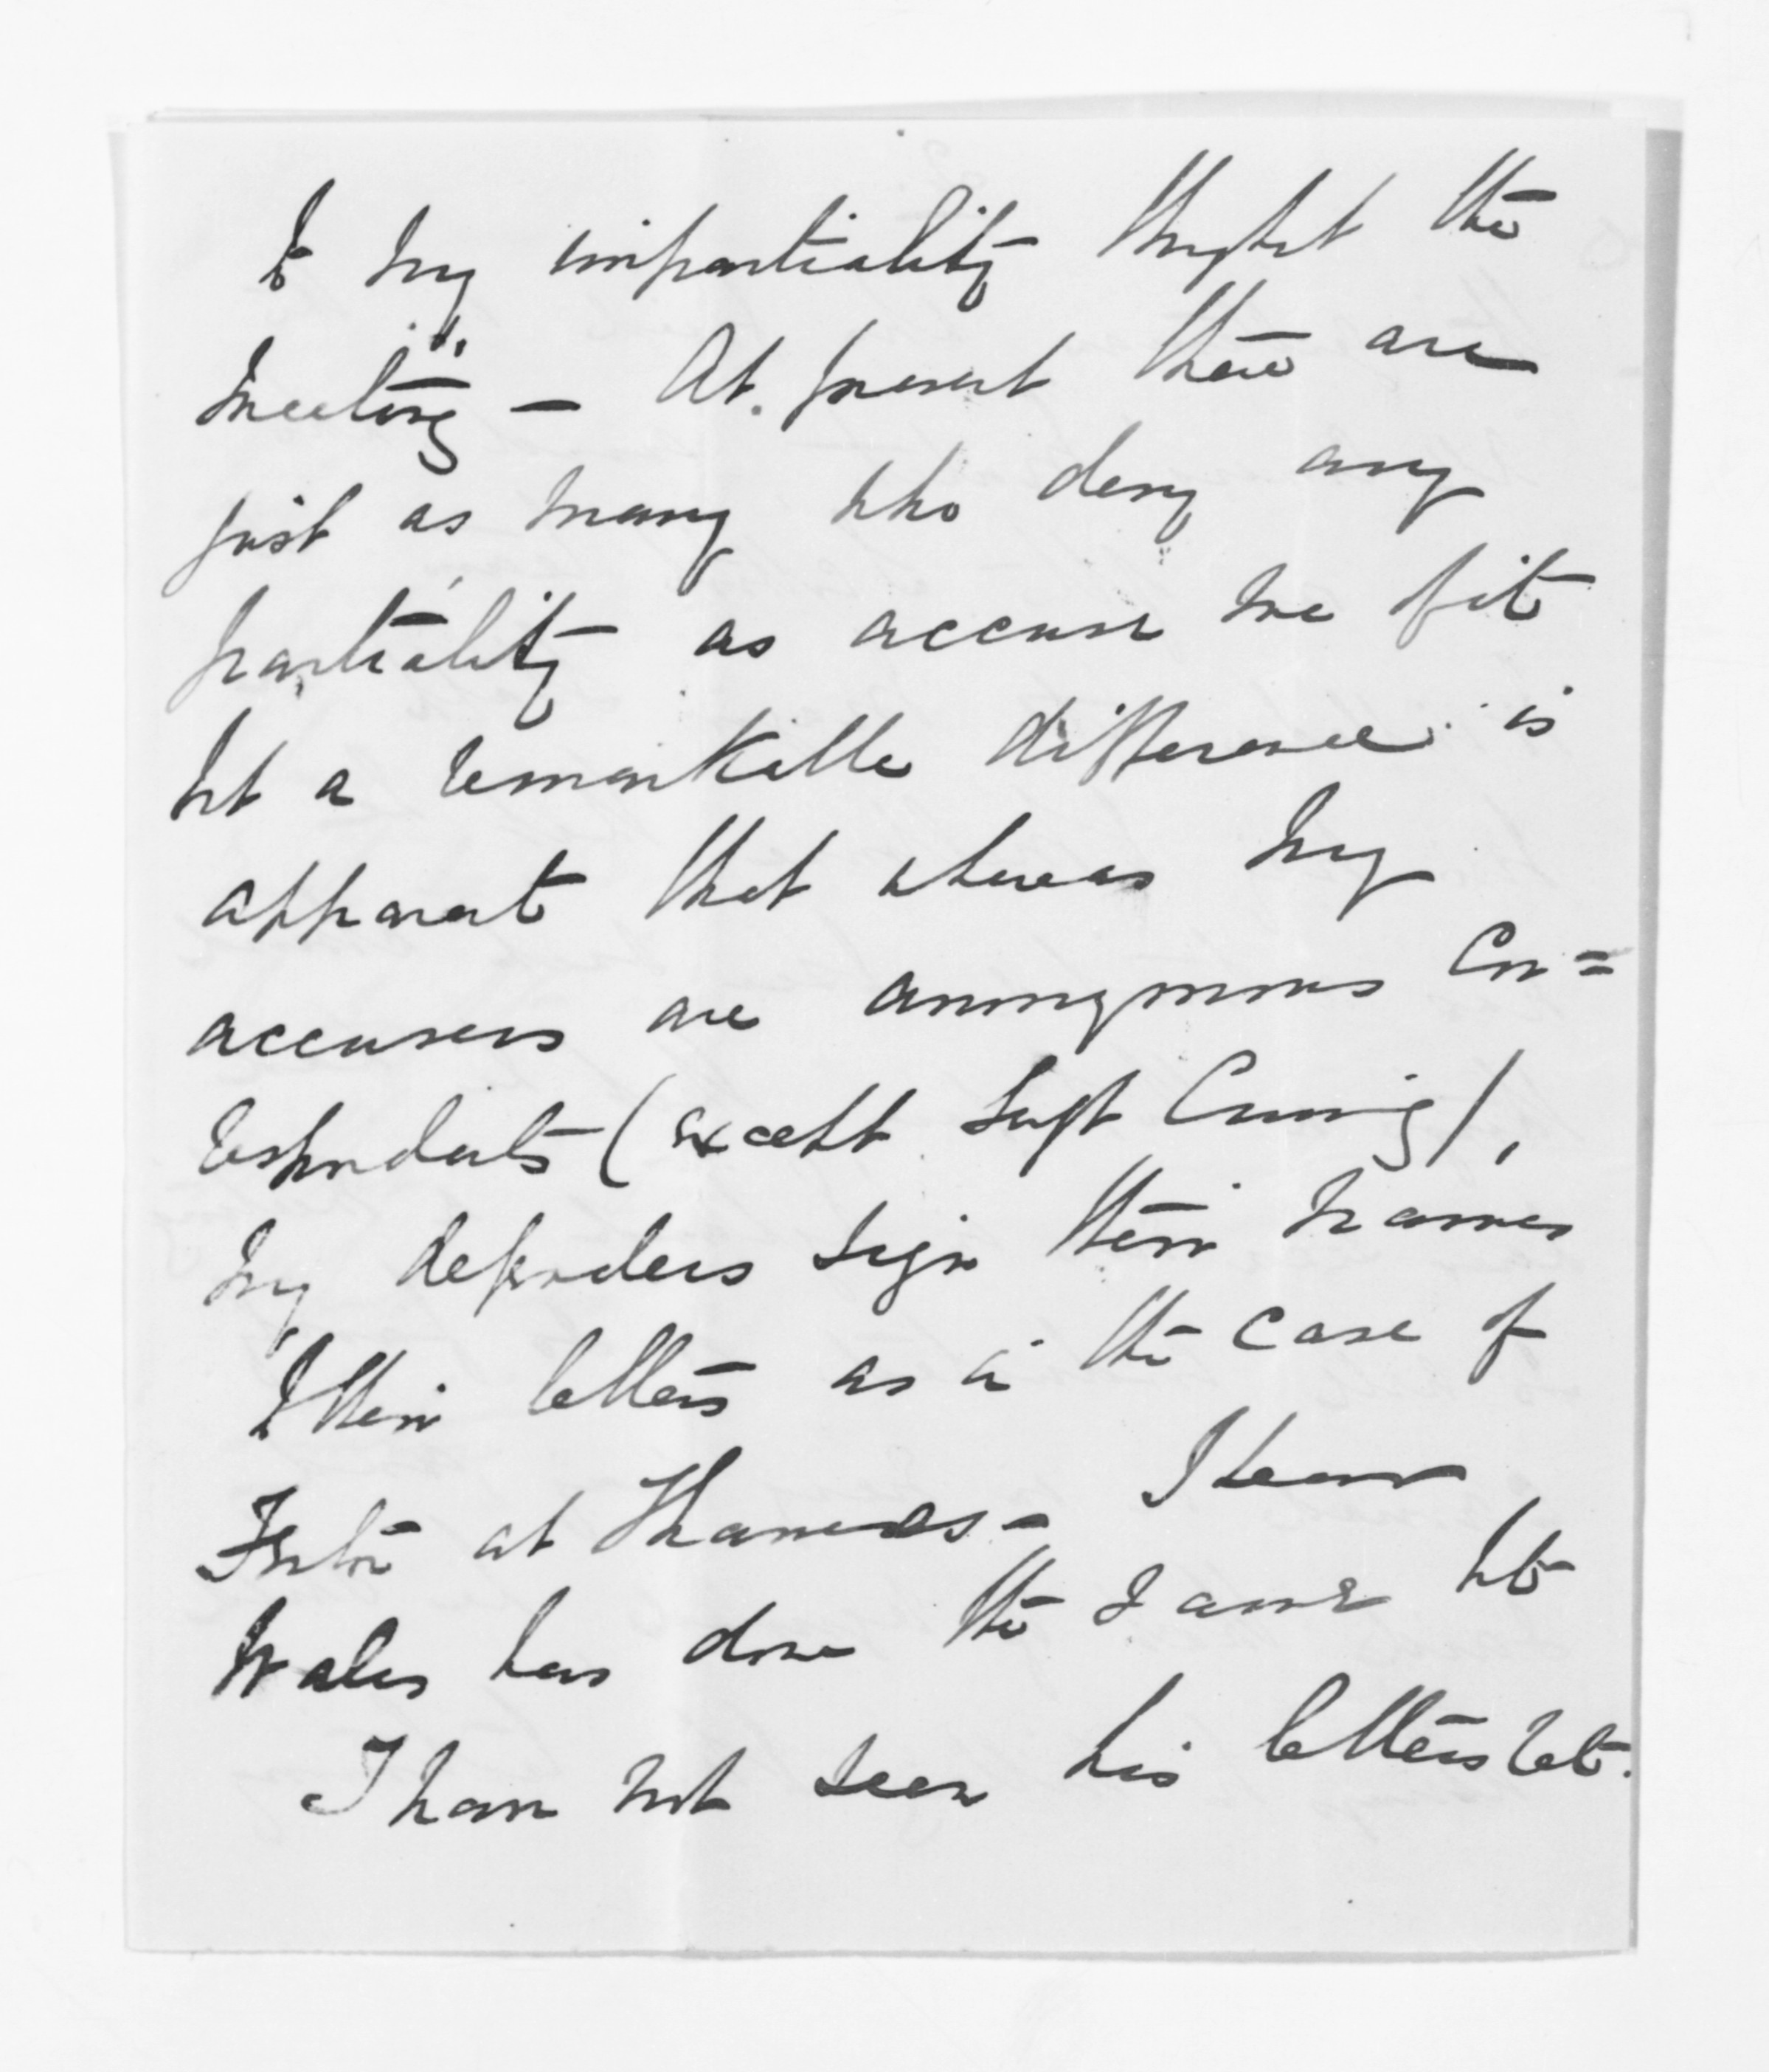 to my impartiality thrught the
meeting — At present there are
just as many who deny any
partiality as accuse me of it
but a remarkable difference is
apparent that whereas my
accusers are anonymous Cor=
respondents (except Supt ),
my defenders sign their names
to their letters as in the case of
at Thames - I hear
Wales has done the same but
I have not seen his letters yet.